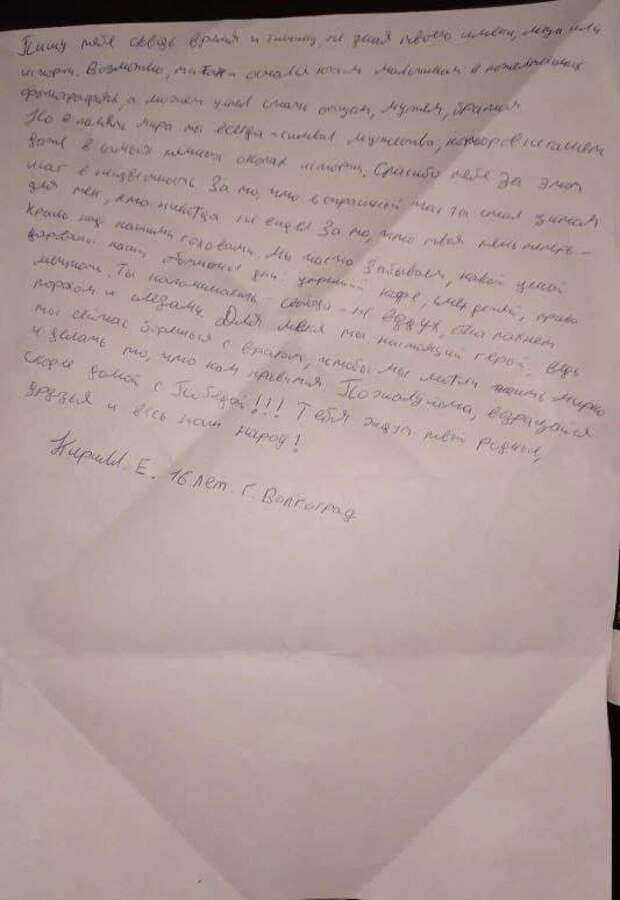 Пишу тебе сквозь время и тишину, не зная твоего имени, лица или
истории. Возможно, ты так и остался юным мальчиком в пожелтевших
фотографиях, а может успел стать отцом, мужем, братом
Но в памяти мира ты всегда – символ мужества, который не гаснет
даже в самых тёмных окопах истории. Спасибо тебе за этот
шаг в неизвестность За то, что в страшный час ты стал щитом
для тех, кто никогда не видел За то, что твоя тень теперь –
крыло над нашими головами. Мы часто забываем, какой ценой
дарованы наши обычные дни утренний кофе, смех детей, право
мечтать. Ты напоминаешь свобода – не воздух, она пахнет
порохом и слезами. Для меня ты настоящий герой, ведь
ты сейчас борешься с врагом, чтобы мы могли жить мирно
и делать то, что нам нравится Пожалуйста, возращайся
скорее домой с Победой!!! Тебя ждут твои родные,
друзья и весь наш народ!
Кирилл. Е. 16 лет. г. Волгоград